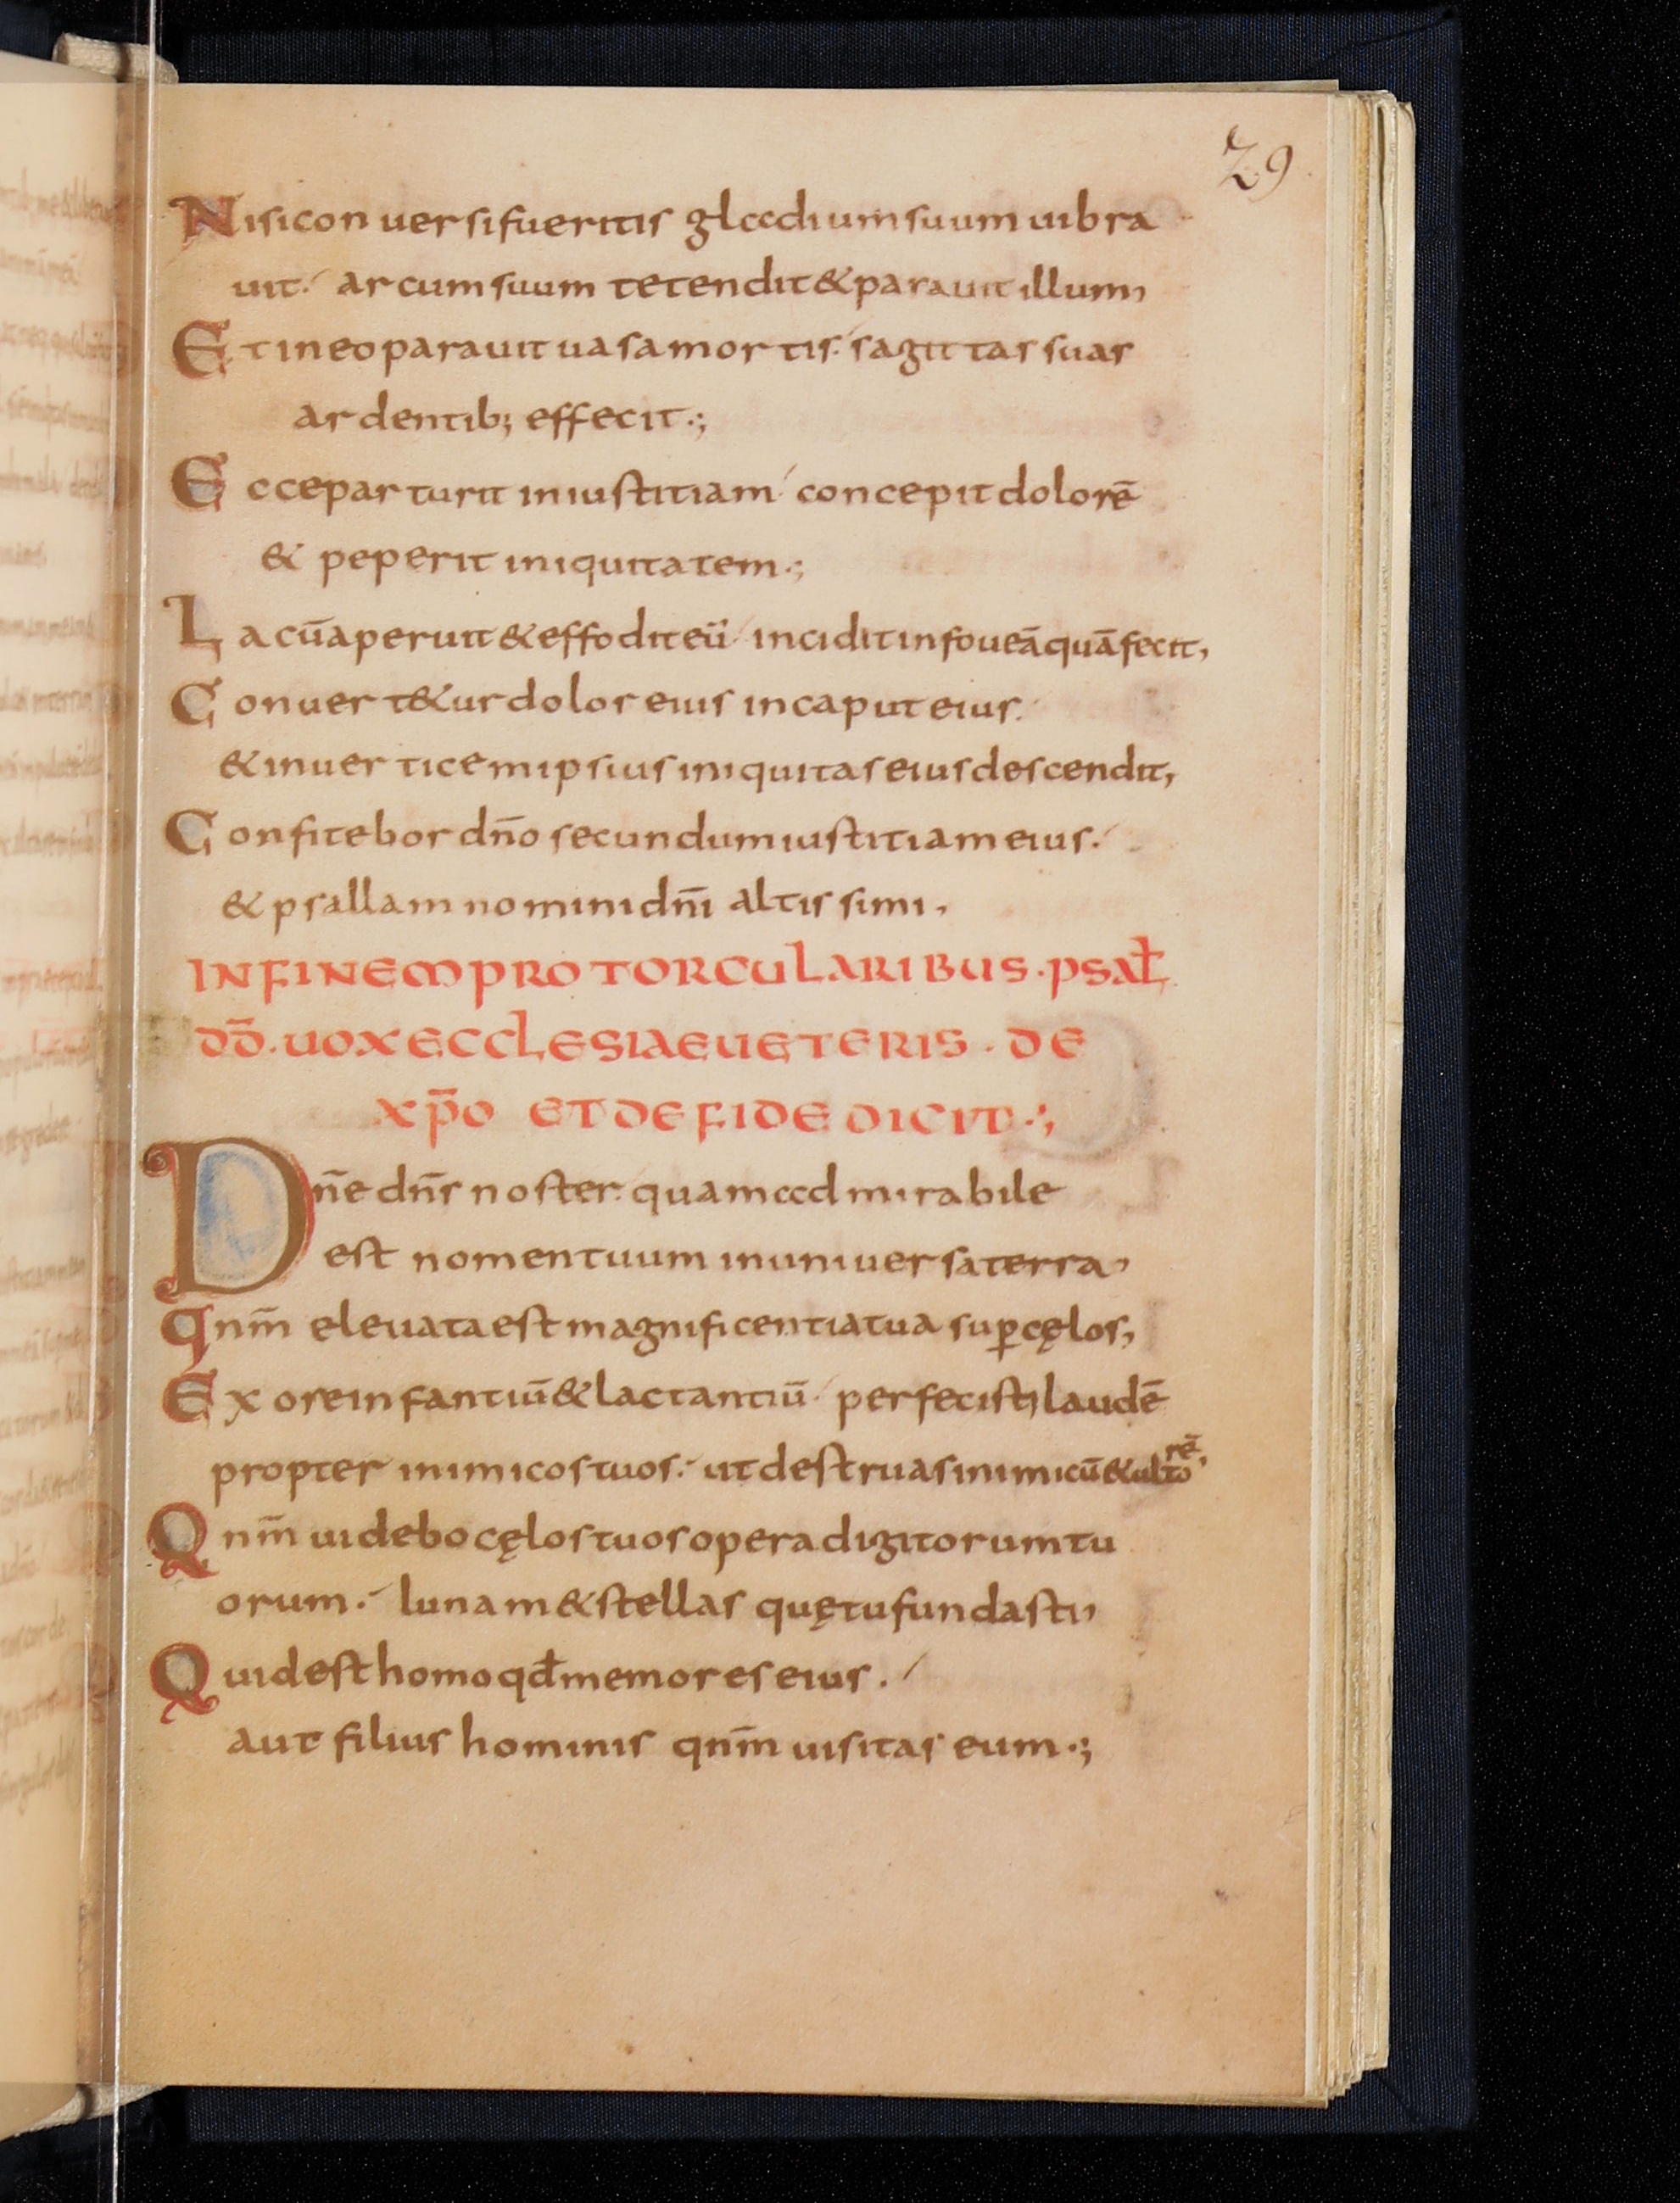 29
Nisi conuersi fueritis gladium suum uibra
uit. arcum suum tetendit & parauit illum,
Et in eo parauit uasa mortis. sagittas suas
ardentib; effecit.;
Ecce parturit iniustitiam concepit dolorē
& peperit iniquitatem.;
Lacū aperuit & effodit eū incidit in foueā quā fecit,
Conuert&ur dolor eius in caput eius.
& in uerticem ipsius iniquitas eius descendit,
Confitebor dn̄o secundum iustitiam eius.
& psallam nomini dn̄i altissimi,
IN FINEM PRO TORCULARIBUS. PSAŁ
DD̄. UOX ECCLESIAE UETERIS. DE
XP̄O ET DE FIDE DICIT.;
Dn̄e dn̄s noster quam admirabile
est nomen tuum in uniuersa terra,
qnm̄ eleuata est magnificentia tua suꝑ cęlos,
Ex ore infantiū & lactantiū perfecisti laudē
propter inimicos tuos. ut destruas inimicū & ultorē,
Qnm̄ uidebo cęlos tuos opera digitorum tu
orum. lunam & stellas quę tu fundasti,
Quid est homo qđ memor es eius.
aut filius hominis qnm̄ uisitas eum.;